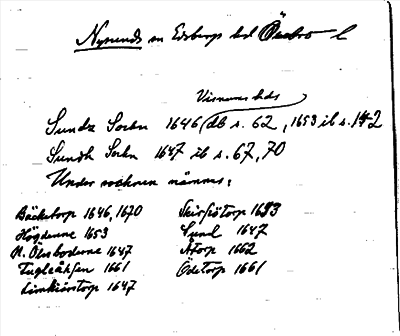 Nysunds sn Edsbergs hd Örebro l
Visnums hds
Sunds Sockn 1646 (db s. 62, 1653 ib s. 142
Sundh Sokn 1647 ib s. 67, 70
Under socknen nämns:
Bäcketorp 1646, 1670
Högderne 1653
N. Ölsboderne 1647
Fugleåhsen 1661
Limkiärstorp 1647
Skirsiötorp 1693
Sund 1647
Åtorp 1662
Ödetorp 1661